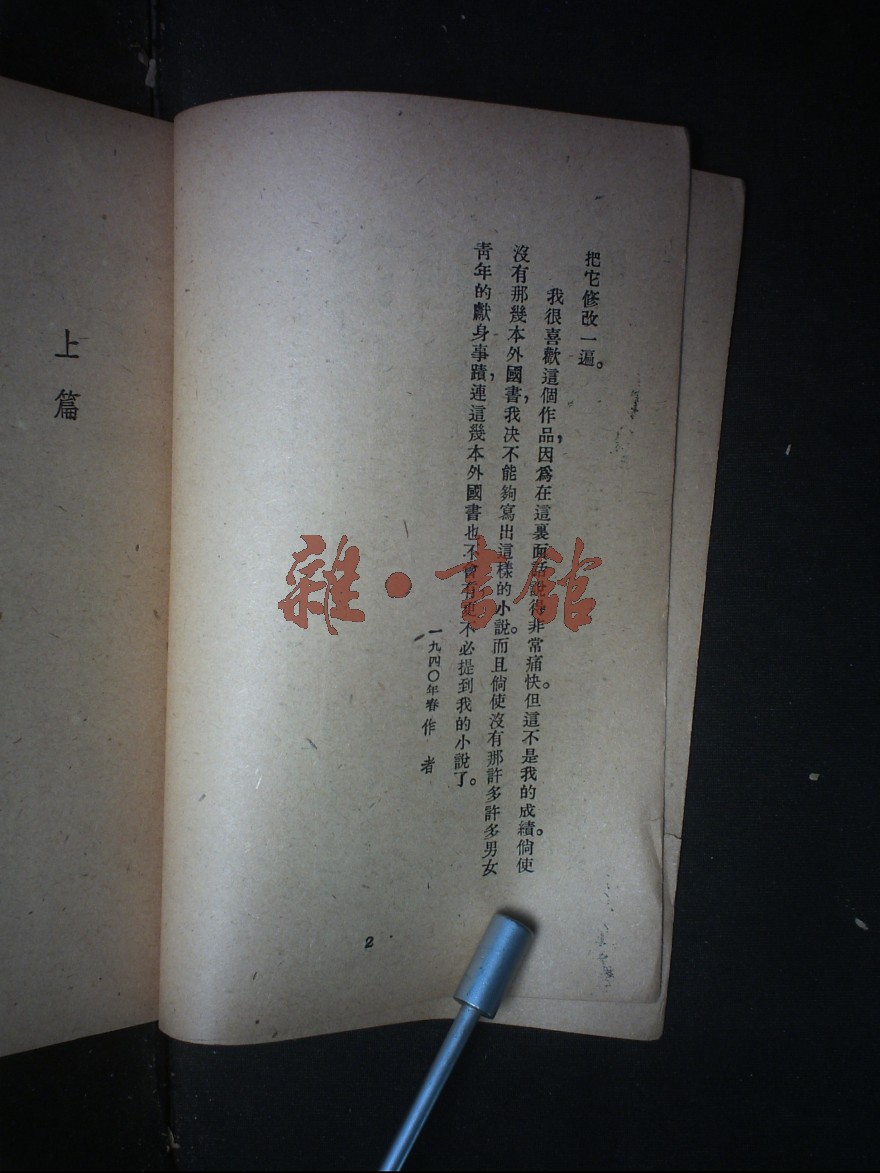 把它修改一遍。
我很喜歡這個作品，因爲在這裏面話說得非常痛快。但這不是我的成績。倘使
沒有那幾本外國書，我決不能夠寫出這樣的小說。而且倘使沒有那許多許多男女
靑年的獻身事蹟，連這幾本外國書也不會有，更不必提到我的小說了。
一九四〇年春 作者
2
上篇
雜·書館